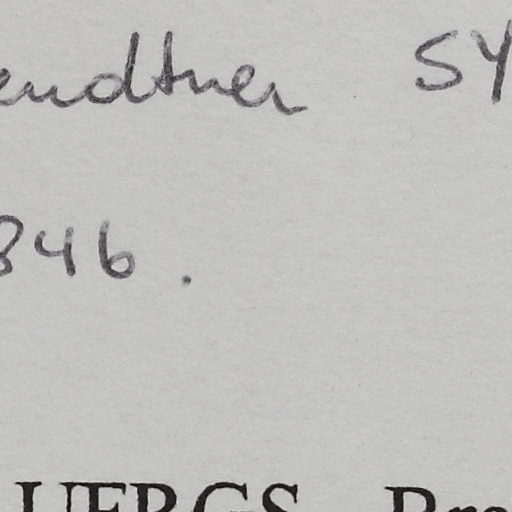 endtner SY
346.
UFRGS Bra